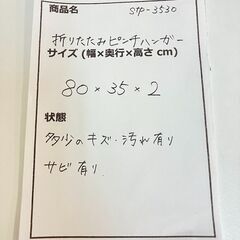 商品名 stp-3530
折りたたみピンチハンガー
サイズ (幅×奥行×高さ cm)
80×35×2
状態
多少のキズ・汚れ有り
サビ有り